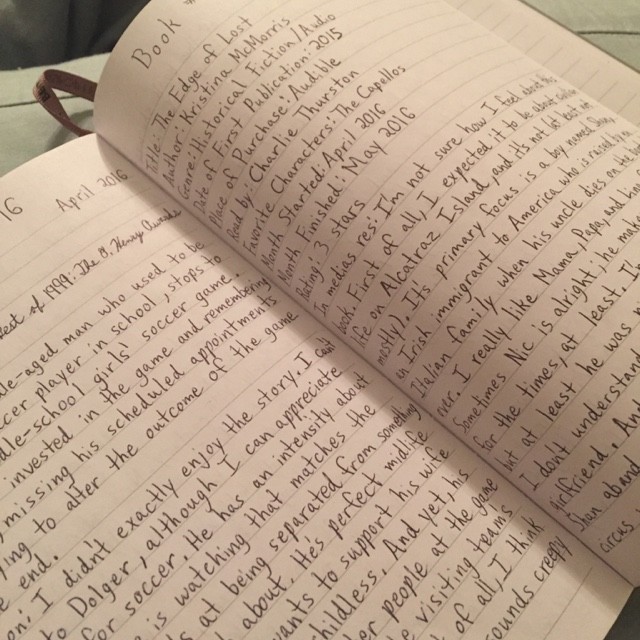 16
April 2016
Best of 1999: The O. Henry
dle-aged man who used to be
ccer player in school, stops to
dle-school girls' soccer game
invested in the game and remembering
missing his scheduled appointments
ying to alter the outcome of the game
e end.
on: I didn't exactly enjoy the story. I
to Dolger, although I can appreciate
for soccer. He has an intensity about
is watching that matches the
s at being separated from something
about. He's perfect midlife
ants to support his wife
childless. And yet, he's
er people at the game
e visiting teams
t of all, I think
ounds creepy
Book
Title: The Edge of Lost
Author: Kristina McMorris
Genre: Historical Fiction/Audio
Date of First Publication: 2015
Place of Purchase: Audible
Read by: Charlie Thurston
Favorite Characters: The Capellos
Month Started: April 2016
Month Finished: May 2016
Rating: 3 stars
In medias res: I'm not sure how I feel about
book. First of all, I expected it to be about
life on Alcatraz Island, and it's not (at least not
mostly). Its primary focus is a boy named
an Irish immigrant to America who is raised
Italian family when his uncle dies on
over. I really like Mama, Papa, and
Sometimes Nic is alright, he
for the times, at least. I
but at least he was
I don't understand
girlfriend. An
Shan aband
circus